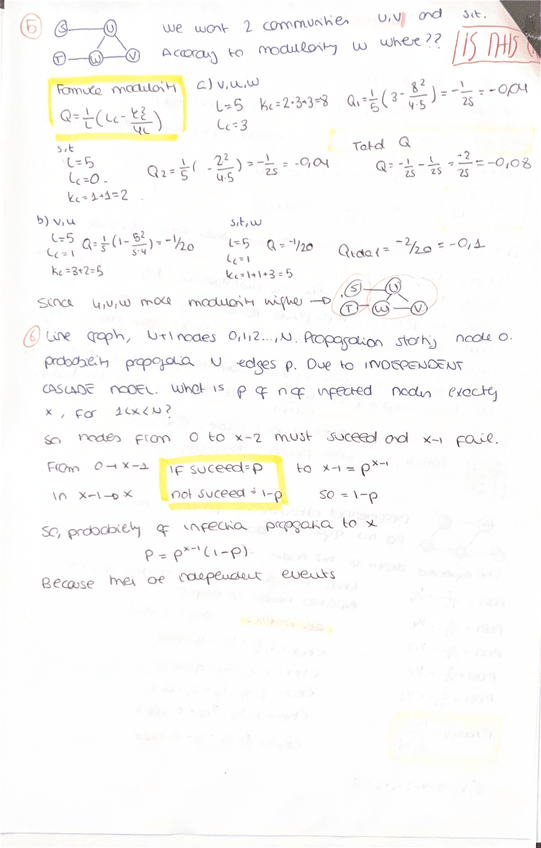 5 S U T W V We want 2 communities u,v and s,t.
According to modularity w where?? IS THIS
Formula modularity
Q = 1/L (Lc - kc²/4L)
a) v,u,w
L=5 Kc=2+3+3=8 Q1=1/5(3 - 8²/4·5) = -1/25 = -0,04
Lc=3
s,t
L=5
Lc=0.
Kc=1+1=2
Q2=1/5( - 2²/4·5) = -1/25 = -0,04
Total Q
Q=-1/25 - 1/25 = -2/25 = -0,08
b) v,u
L=5 Q=1/5(1 - 5²/5·4) = -1/20
Lc=1
Kc=3+2=5
s,t,w
L=5 Q=-1/20
Lc=1
Kc=1+1+3=5
Qtotal = -2/20 = -0,1
Since u,v,w more modularity higher → S U T W V
6 Line graph, N+1 nodes 0,1,2...,N. Propagation starting node 0.
probability propagatia N edges p. Due to INDEPENDENT
CASCADE MODEL. What is p of nº of infected nodes exactly
x, for 1<x<N?
So nodes from 0 to x-2 must suceed and x-1 fail.
From 0→x-1 if suceed=p to x-1 = p^x-1
In x-1→x not suceed=1-p so = 1-p
So, probability of infectia propagatia to x
P = p^x-1 (1-p)
Because independent events